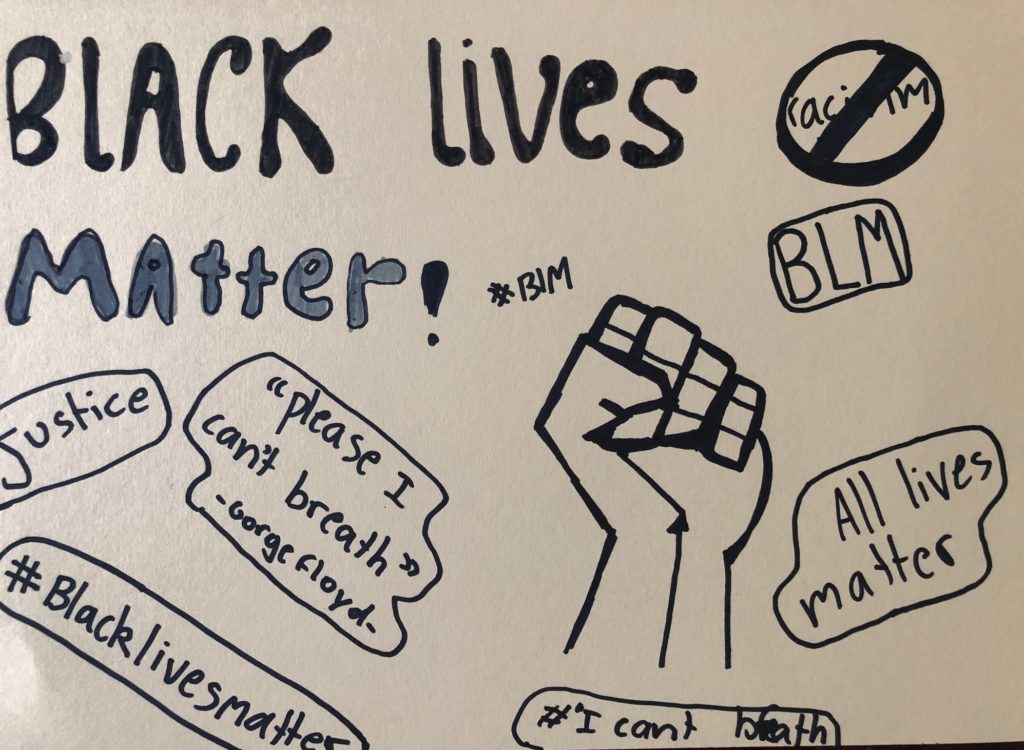 BLACK lives
Matter!
racism
BLM
#BlM
Justice
"please I
can't breath"
-Gorge Floyd-
All lives
matter
#Blacklivesmatter
#"I cant breath